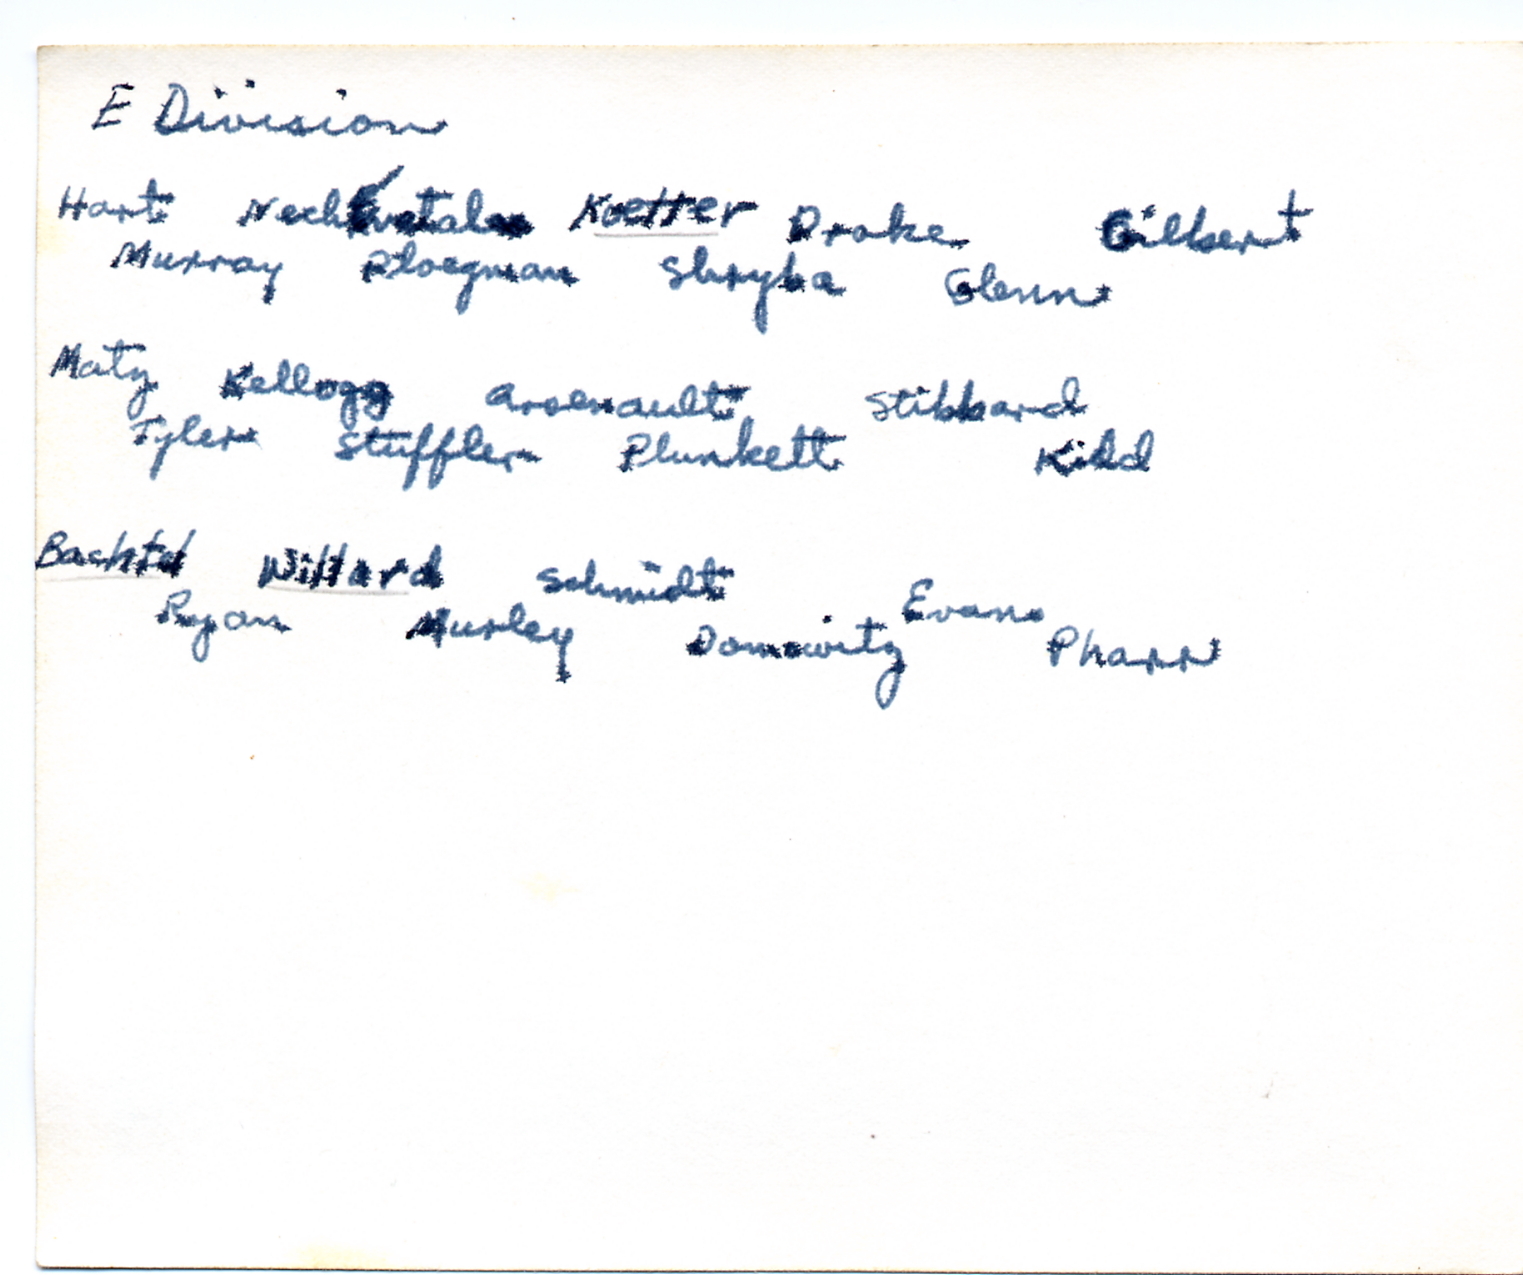 E Division
Hart Koetter Drake Gilbert
Murray Ploegman Skryba Glenn
Matz Kellogg Arsenault Stibbard
Tyler Stuffler Plunkett Kidd
Willard Schmidt Evans
Ryan Murley Domowitz Pharr